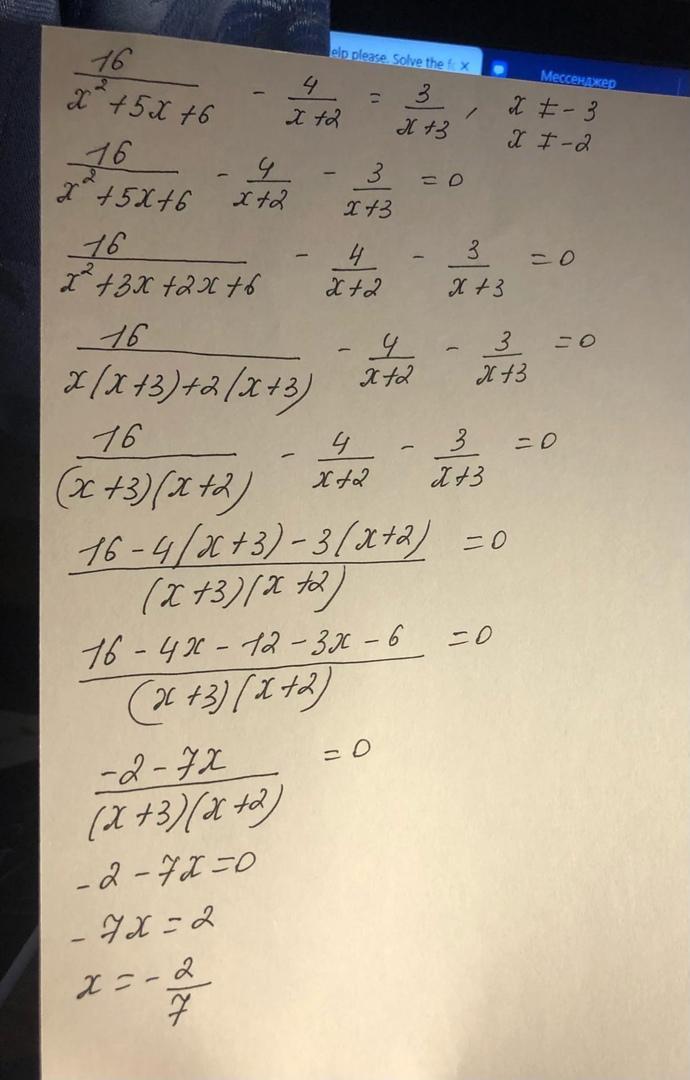 elp please. Solve the f
Мессенджер
16/(x²+5x+6) - 4/(x+2) = 3/(x+3), x ≠ -3
x ≠ -2
16/(x²+5x+6) - 4/(x+2) - 3/(x+3) = 0
16/(x²+3x+2x+6) - 4/(x+2) - 3/(x+3) = 0
16/(x(x+3)+2(x+3)) - 4/(x+2) - 3/(x+3) = 0
16/((x+3)(x+2)) - 4/(x+2) - 3/(x+3) = 0
(16-4(x+3)-3(x+2))/((x+3)(x+2)) = 0
(16-4x-12-3x-6)/((x+3)(x+2)) = 0
(-2-7x)/((x+3)(x+2)) = 0
-2-7x=0
-7x=2
x=-2/7